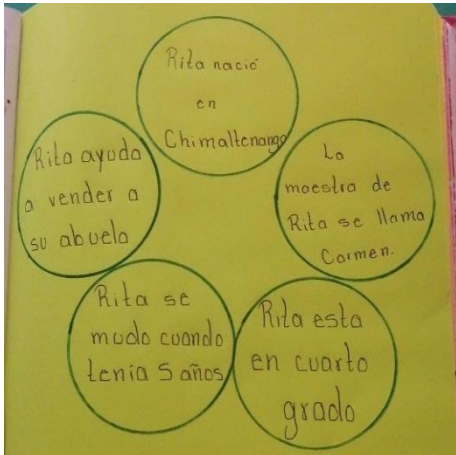 Rita nació
en
Chimaltenango
Rita ayuda
a vender a
su abuela
La
maestra de
Rita se llama
Carmen.
Rita se
mudo cuando
tenia 5 años
Rita esta
en cuarto
grado